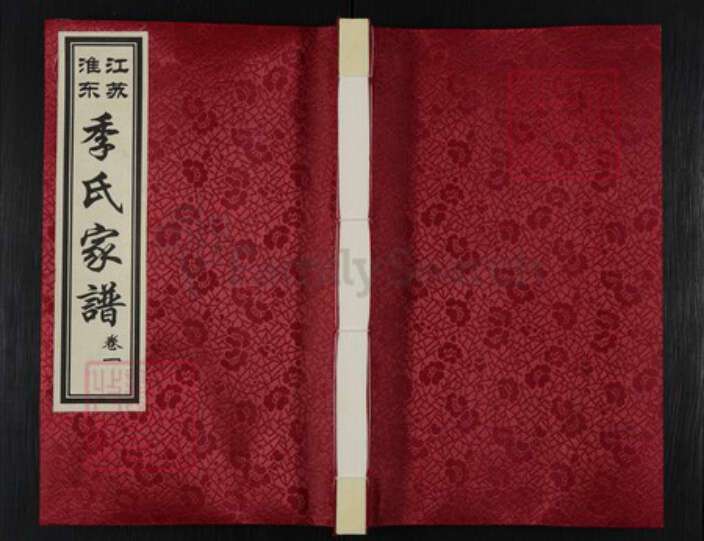 江苏
淮东
季氏家譜
卷一
FamilySearch